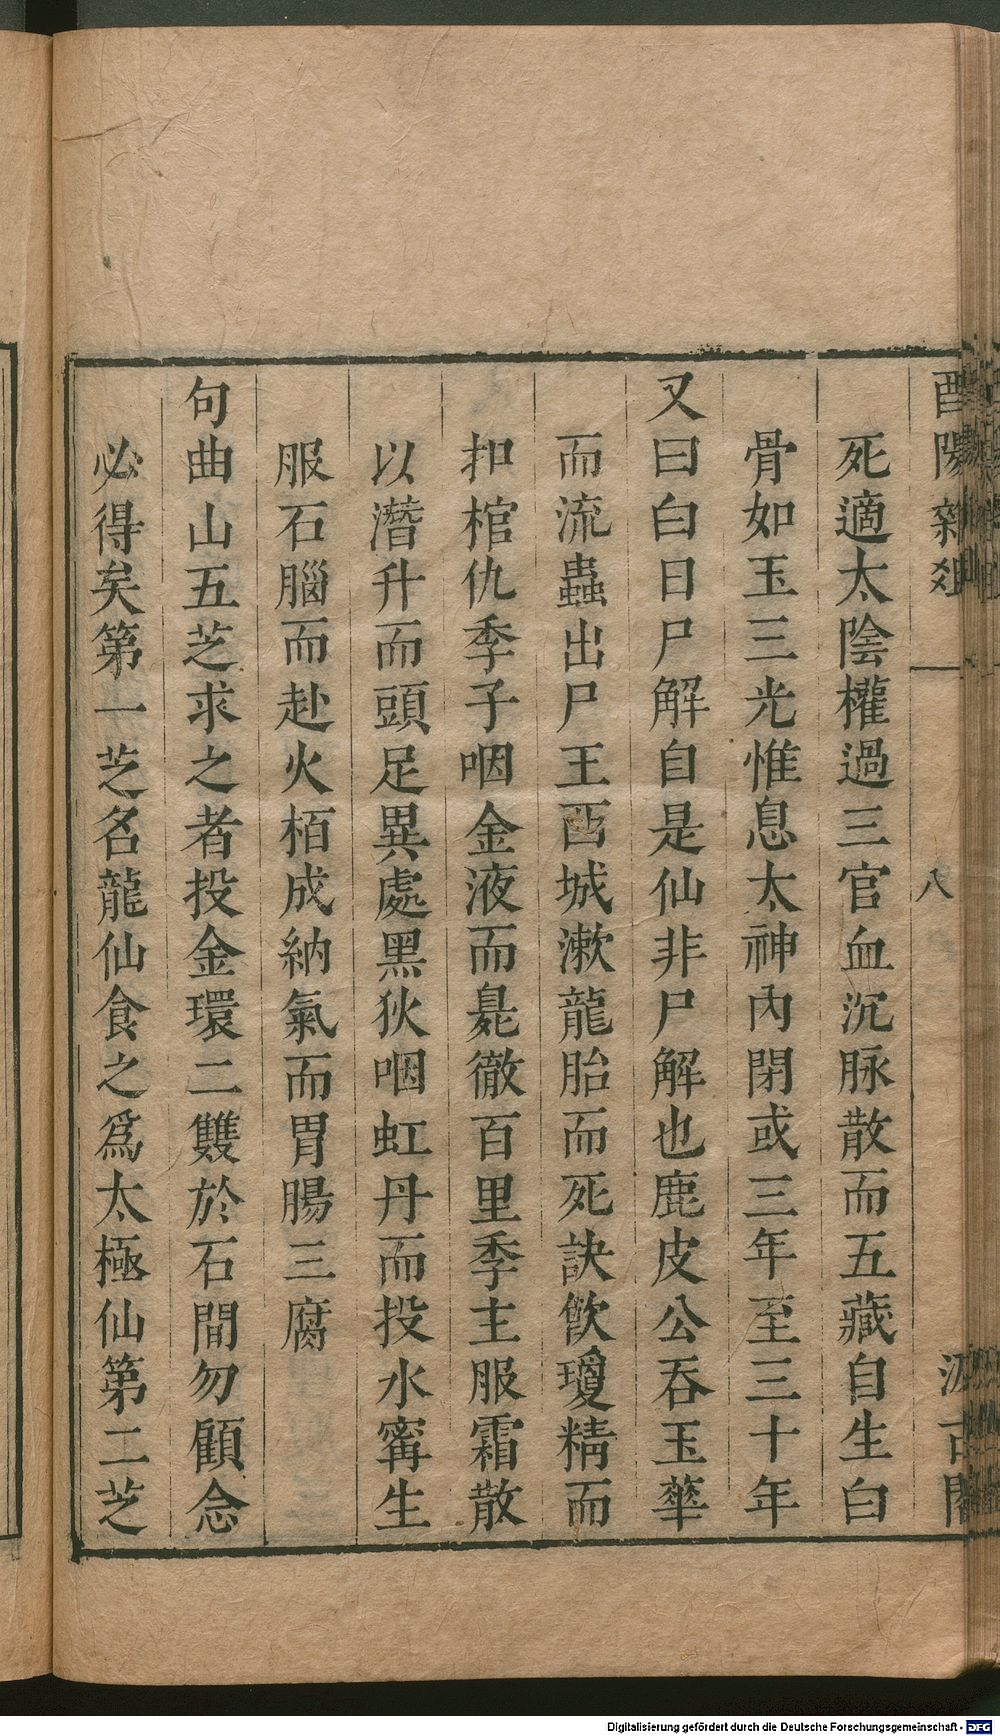 酉陽雜俎
八
汲古閣
死適太陰權過三官血沉脉散而五藏自生白
骨如玉三光惟息太神內閉或三年至三十年
又曰白日尸解自是仙非尸解也鹿皮公吞玉華
而流蟲出尸王西城漱龍胎而死訣飲瓊精而
扣棺仇季子咽金液而臰徹百里季主服霜散
以潛升而頭足異處黑狄咽虹丹而投水寗生
服石腦而赴火栢成納氣而胃腸三腐
句曲山五芝求之者投金環二雙於石間勿顧念
必得矣第一芝名龍仙食之爲太極仙第二芝
Digitalisierung gefördert durch die Deutsche Forschungsgemeinschaft - DFG